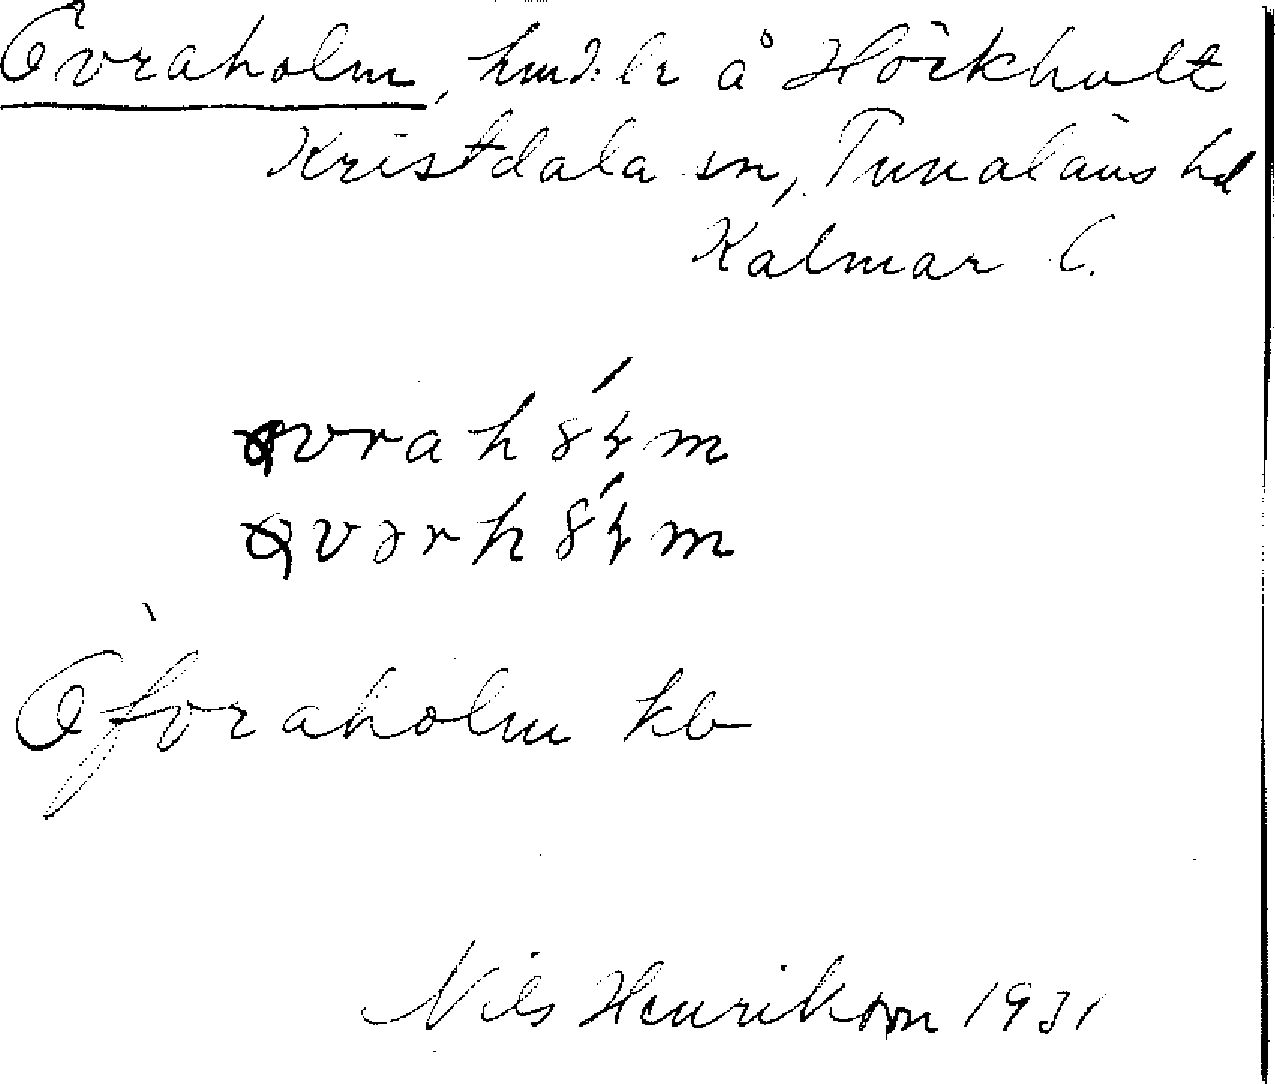 Övraholm, hmd. lr å Höckhult
Kristdala sn, Tunaläns hd
Kalmar l.
Öfvraholm kb
Nils Henrikson 1931